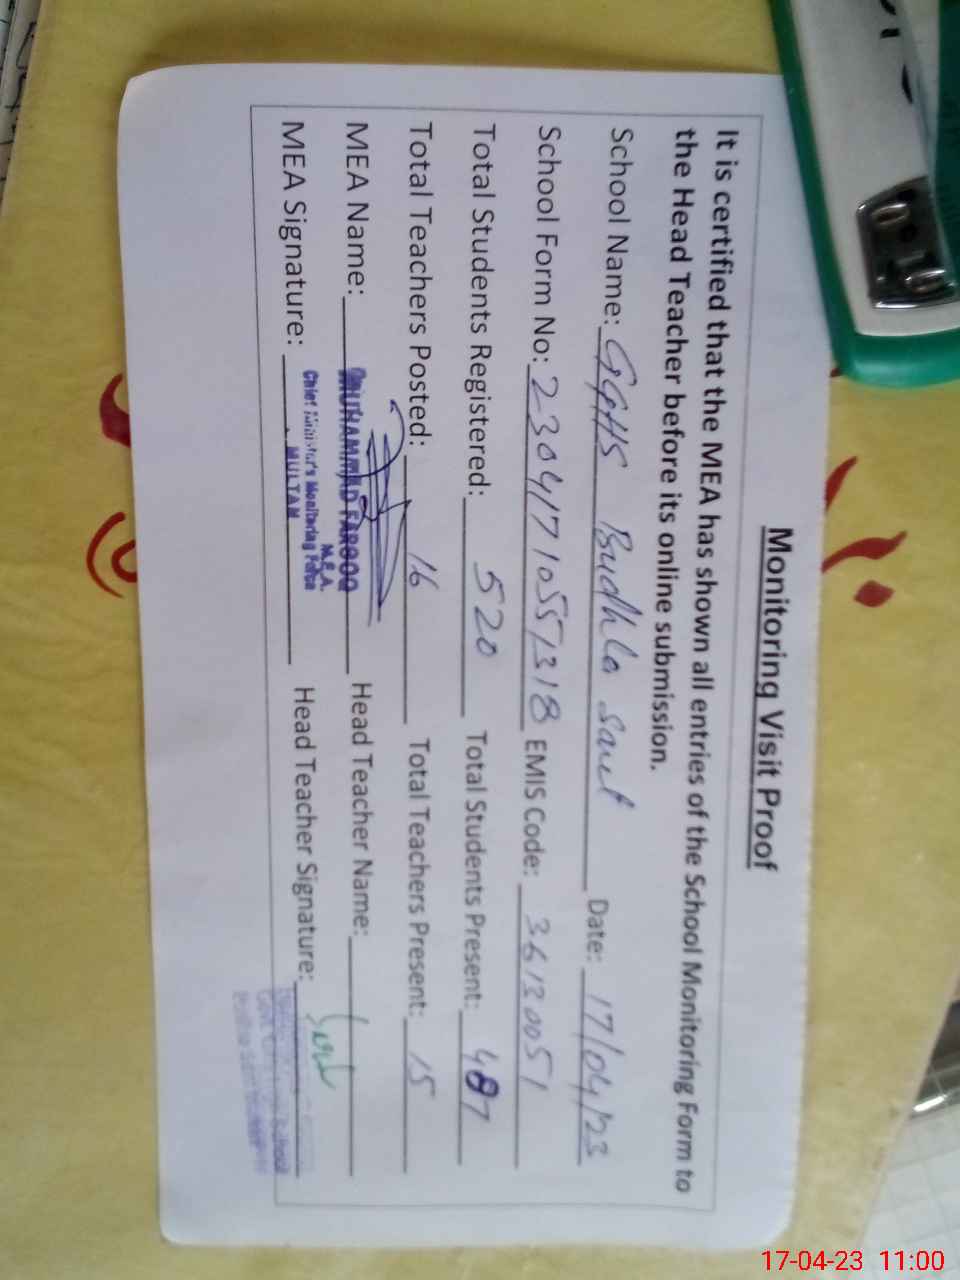 Monitoring Visit Proof
It is certified that the MEA has shown all entries of the School Monitoring Form to
the Head Teacher before its online submission.
School Name: GGHS Budhla Sant Date: 17/04/23
School Form No: 23041710551318 EMIS Code: 36130051
Total Students Registered: 520 Total Students Present: 487
Total Teachers Posted: 16 Total Teachers Present: 15
MEA Name: MUHAMMAD FAROOQ Head Teacher Name:
M.E.A.
MEA Signature: Chief Minister's Monitoring Force Head Teacher Signature:
MULTAN
17-04-23 11:00